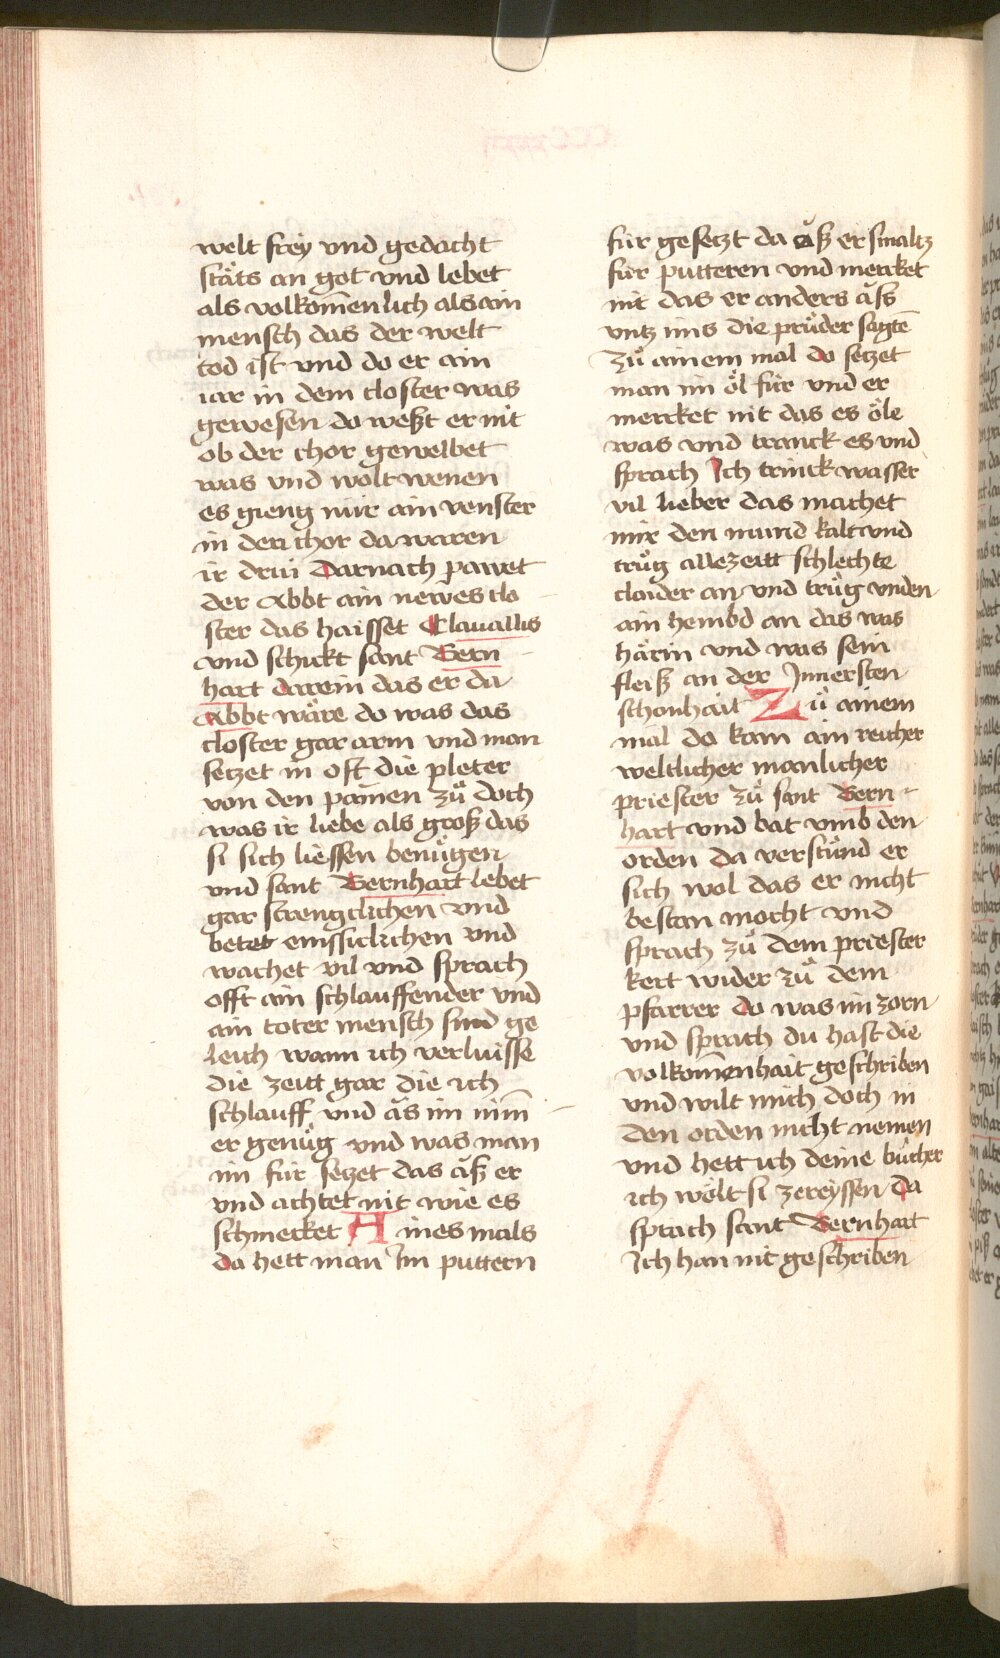 welt frey vnd gedacht
stäts an got vnd lebet
als volkom̄enlich als ain
mensch das der welt
tod ist vnd do er ain
iar in dem closter was
gewesen do weßt er nit
ob der chor gewelbet
was vnd wolt wenen
es gieng nur ain venster
in den chor da waren
ir drui Darnach pawet
der Abbt ain newes clo
ster das haisset Clauallis
vnd schickt sant Bern
hart darein das er da
Abbt wäre do was das
closter gar arm vnd man
setzet in oft die pleter
von den pamen zů doch
was ir liebe als groß das
si sich liessen benůgen
vnd sant Bernhart lebet
gar strengclichen vnd
betet emssiclichen vnd
wachet vil vnd sprach
offt ain schlauffender vnd
ain toter mensch sind ge
leich wann ich verluisse
die zeitt gar die ich
schlauff vnd äs im nim̄
er genůg vnd was man
im für setzet das äß er
vnd achtet nit wie es
schmecket Aines mals
da hett man Im puttern
für gesetzt da äß er smaltz
für putteren vnd mercket
nit das er anders äß
vntz ims die průder sagtē
Zů ainem mal do setzet
man im öl für vnd er
mercket nit das es öle
was vnd tranck es vnd
sprach Ich trinck wasser
vil lieber das machet
mir den mund kalt vnd
trůg allezeitt schlechte
claider an vnd trůg vnden
ain hembd an das was
härin vnd was sein
fleiß an der Innersten
schonhait Zů ainem
mal do kom ain reicher
weltlicher manlicher
priester zů sant Bern
hart vnd bat vmb den
orden da verstůnd er
sich wol das er nicht
bestan mocht vnd
sprach zů dem priester
kert wider zů dem
pfarrer do was im zorn
vnd sprach du hast die
volkom̄enhait geschriben
vnd wilt mich doch in
den orden nicht nemen
vnd hett ich deine bůcher
ich wölt si zereyssen da
sprach sant Bernhart
Ich han nit geschriben